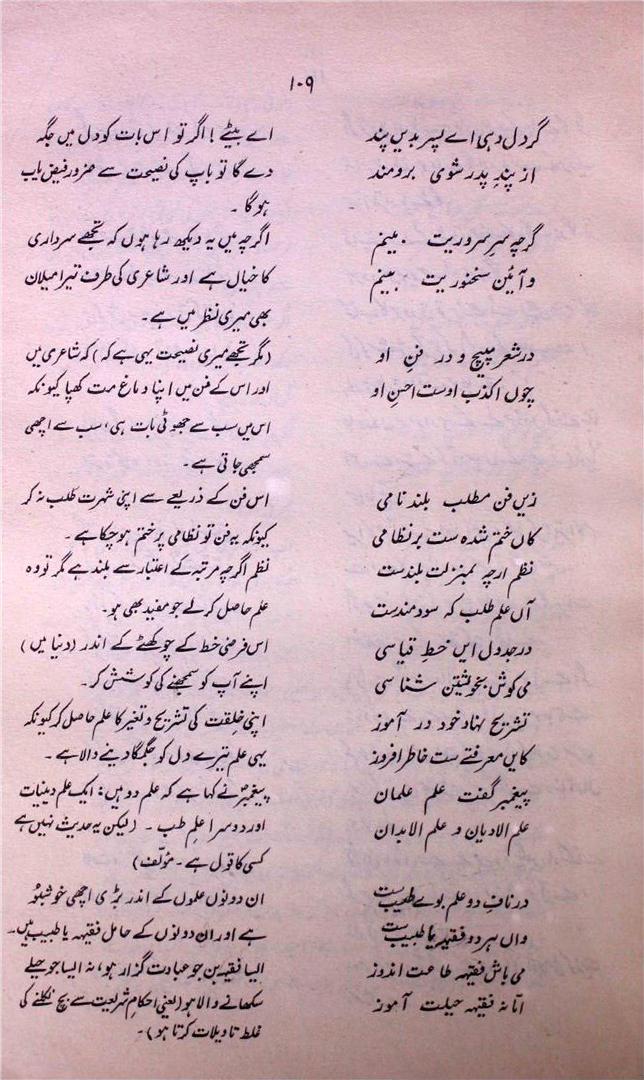 ۱۰۹
گر دل دہی اے پسر بدیں پند
از پندِ پدر شوی برومند
گرچہ سرِ سروریت بینم
و آئینِ سخنوریت بینم
در شعر مپیچ و در فنِ او
چوں اکذب اوست احسنِ او
زیں فن مطلب بلند نامی
کاں ختم شدہ ست بر نظامی
نظم ارچہ بمنزلت بلندست
آں علم طلب کہ سودمندست
در جدول ایں خطِ قیاسی
می کوش بخویشتن شناسی
تشریح نہاد خود در آموز
کایں معرفتے ست خاطر افروز
پیغمبر گفت علم علمان
علم الادیان و علم الابدان
در نافِ دو علم بوے طیب ست
واں ہر دو فقیہ یا طبیب ست
می باش فقیہہ طاعت اندوز
امّا نہ فقیہہ حیلت آموز
اے بیٹے! اگر تو اس بات کو دل میں جگہ
دے گا تو باپ کی نصیحت سے ضرور فیض یاب
ہوگا۔
اگرچہ میں یہ دیکھ رہا ہوں کہ تجھے سرداری
کا خیال ہے اور شاعری کی طرف تیرا میلان
بھی میری نظر میں ہے۔
(مگر تجھے میری نصیحت یہی ہے کہ) کہ شاعری میں
اور اس کے فن میں اپنا دماغ مت کھپا کیونکہ
اس میں سب سے جھوٹی بات ہی، سب سے اچھی
سمجھی جاتی ہے۔
اس فن کے ذریعے سے اپنی شہرت طلب نہ کر
کیونکہ یہ فن تو نظامی پر ختم ہو چکا ہے۔
نظم اگرچہ مرتبہ کے اعتبار سے بلند ہے مگر تو وہ
علم حاصل کر لے جو مفید بھی ہو۔
اس فرضی خط کے چوکھٹے کے اندر (دنیا میں)
اپنے آپ کو سمجھنے کی کوشش کر۔
اپنی خلقت کی تشریح و تغیر کا علم حاصل کر کیونکہ
یہی علم تیرے دل کو جگمگا دینے والا ہے۔
پیغمبرؐ نے کہا ہے کہ علم دو ہیں: ایک علم دینیات
اور دوسرا علمِ طب۔ (لیکن یہ حدیث نہیں ہے
کسی کا قول ہے۔ مؤلّف)
ان دونوں علموں کے اندر بڑی اچھی خوشبو
ہے اور ان دونوں کے حامل فقیہہ یا طبیب ہیں۔
ایسا فقیہہ بن جو عبادت گزار ہو، نہ ایسا جو حیلے
سکھانے والا ہو (یعنی احکامِ شریعت سے بچ نکلنے کی
غلط تاویلات کرتا ہو)۔